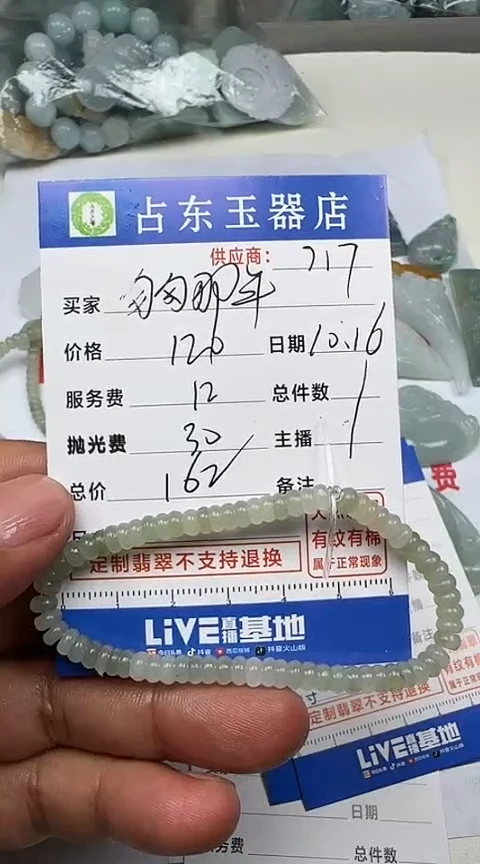 占东玉器店
供应商: 717
买家 匆匆那年
价格 120 日期 10.16
服务费 12 总件数 1
抛光费 30 主播
总价 162 备注
定制翡翠不支持退换
有纹有棉
属于正常现象
LiVE直播基地
今日头条 抖音 西瓜视频 抖音火山版
费
备注
定制翡翠不支持退换
有纹有棉
属于正常
寸
LiVE直播基地
日期
服务费 总件数